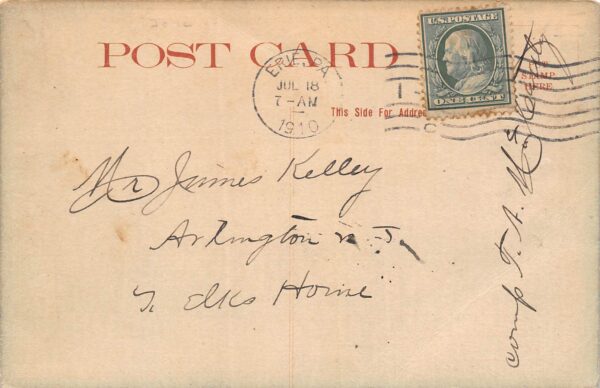 POST CARD
ERIE, PA
JUL 18
7-AM
1910
U.S. POSTAGE
ONE CENT
STAMP
HERE
This Side For Address
Mr James Kelley
Arlington N.J.
Elks Home
comp T. A.